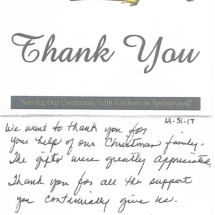 Thank You
"Serving Our Community with Kindness in Springwood"
12-31-17
We want to thank you for
your help of our Christmas family.
The gifts were greatly appreciated.
Thank you for all the support
you continually give us.